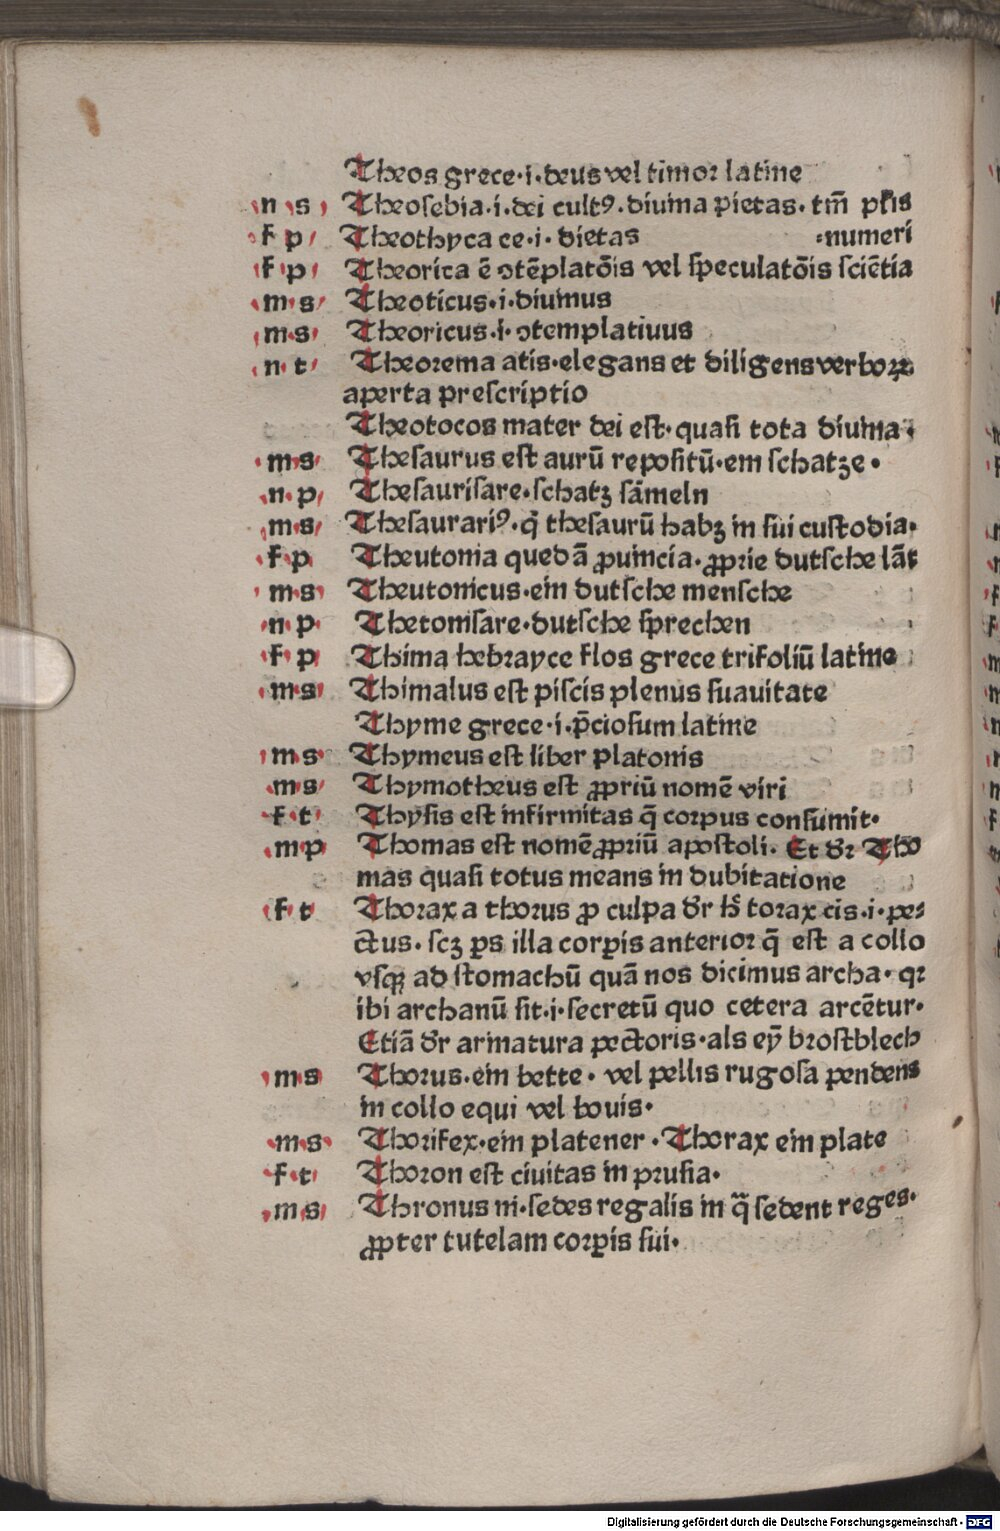 Theos grece·i·deus vel timor latine
n s Theosebia·i·dei cultꝰ·diuina pietas·tm̄ płis
f p Theothyca ce·i·dietas ⸗numeri
f p Theorica ē ↄtēplatōis vel speculatōis sciētia
m s Theoticus·i·diuinus
m s Theoricus·i·ↄtemplatiuus
n t Theorema atis·elegans et diligens verboꝝ
aperta prescriptio
Theotocos mater dei est·quasi tota diuina·
m s Thesaurus est aurū repositū·em schatze·
n p Thesaurisare·schatz sāmeln
m s Thesaurariꝰ·q̇ thesaurū habꝫ in sui custodia·
f p Theutonia quedā ꝓuincia·ꝓprie dutsche lāt
m s Theutonicus·ein dutsche mensche
n p Thetonisare·dutsche sprechen
f p Thima hebrayce flos grece trifoliū latine
m s Thimalus est piscis plenus suauitate
Thyme grece·i·p̄ciosum latine
m s Thymeus est liber platonis
m s Thymotheus est ꝓpriū nomē viri
f t Thysis est infirmitas q̄ corpus consumit·
m p Thomas est nomē ꝓpriū apostoli· Et dr̄ Tho
mas quasi totus means in dubitatione
f t Thorax a thorus ꝓ culpa dr̄ hꝫ torax cis·i·pe⸗
ctus·scꝫ ꝑs illa corꝑis anterior q̄ est a collo
vsqꝫ ad stomachū quā nos dicimus archa·qꝛ
ibi archanū sit·i·secretū quo cetera arcētur·
Etiā dr̄ armatura pectoris·als eȳ brostblech
m s Thorus·ein bette·vel pellis rugosa pendens
in collo equi vel bouis·
m s Thorifex·ein platener·Thorax ein plate
f t Thoron est ciuitas in prusia·
m s Thronus ni·sedes regalis in q̄ sedent reges·
ꝓpter tutelam corꝑis sui·
Digitalisierung gefördert durch die Deutsche Forschungsgemeinschaft - DFG